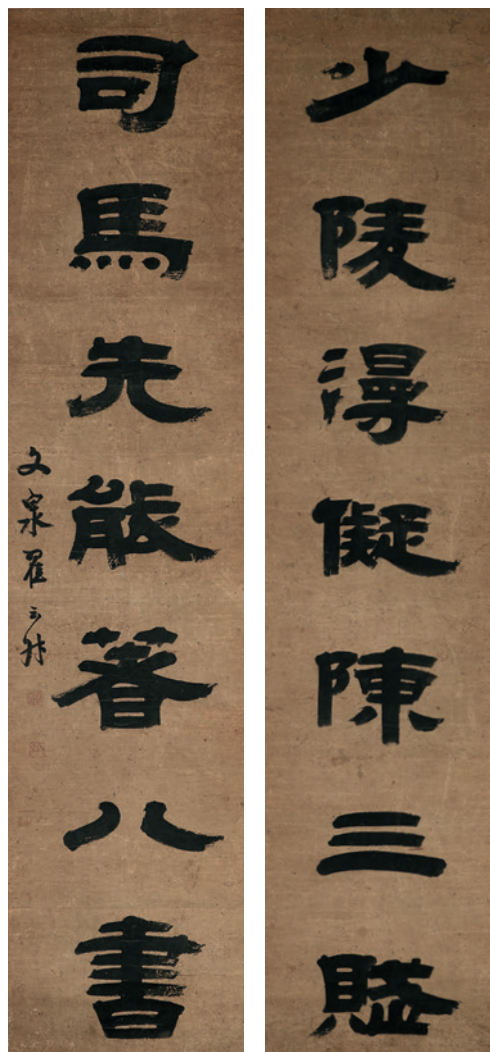 少陵漫儗陳三賦
司馬先能著八書
文泉翟云升